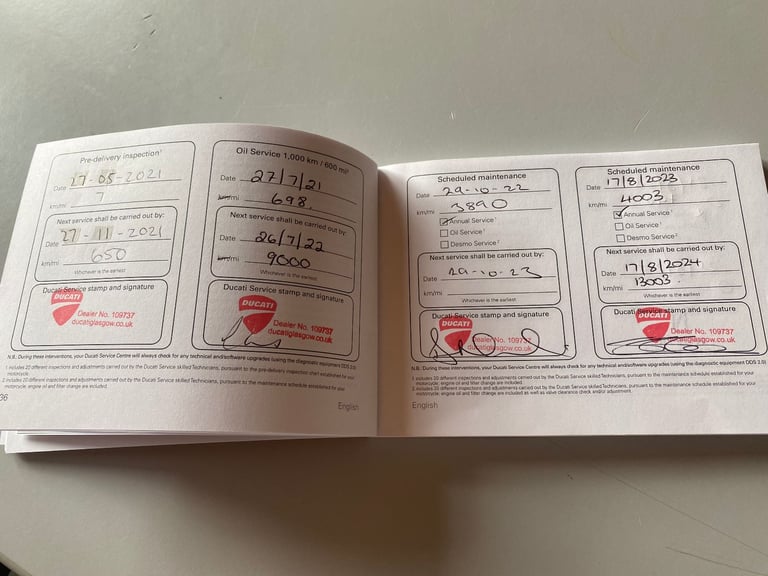 Pre-delivery inspection¹
Date 27-05-2021
km/mi 7
Next service shall be carried out by:
Date 27-11-2021
km/mi 650
Whichever is the earliest
Ducati Service stamp and signature
DUCATI
Dealer No. 109737
ducatiglasgow.co.uk
Oil Service 1,000 km / 600 mi²
Date 27/7/21
km/mi 698
Next service shall be carried out by:
Date 26/7/22
km/mi 9000
Whichever is the earliest
Ducati Service stamp and signature
DUCATI
Dealer No. 109737
ducatiglasgow.co.uk
N.B. During these interventions, your Ducati Service Centre will always check for any technical and/software upgrades (using the diagnostic equipment DDS 2.0)
1 Includes 20 different inspections and adjustments carried out by the Ducati Service skilled Technicians, pursuant to the pre-delivery inspection chart established for your
motorcycle.
2 Includes 20 different inspections and adjustments carried out by the Ducati Service skilled Technicians, pursuant to the maintenance schedule established for your
motorcycle; engine oil and filter change are included.
36
English
Scheduled maintenance
Date 29-10-22
km/mi 3890
Annual Service¹
Oil Service¹
Desmo Service²
Next service shall be carried out by:
Date 29-10-23
km/mi
Whichever is the earliest
Ducati Service stamp and signature
DUCATI
Dealer No. 109737
ducatiglasgow.co.uk
Scheduled maintenance
Date 17/8/2023
km/mi 4003
Annual Service¹
Oil Service¹
Desmo Service²
Next service shall be carried out by:
Date 17/8/2024
km/mi 13003
Whichever is the earliest
Ducati Service stamp and signature
DUCATI
Dealer No. 109737
ducatiglasgow.co.uk
N.B. During these interventions, your Ducati Service Centre will always check for any technical and/software upgrades (using the diagnostic equipment DDS 2.0)
1 Includes 20 different inspections and adjustments carried out by the Ducati Service skilled Technicians, pursuant to the maintenance schedule established for your
motorcycle; engine oil and filter change are included.
2 Includes 20 different inspections and adjustments carried out by the Ducati Service skilled Technicians, pursuant to the maintenance schedule established for your
motorcycle; engine oil and filter change are included as well as valve clearance check and/or adjustment.
English